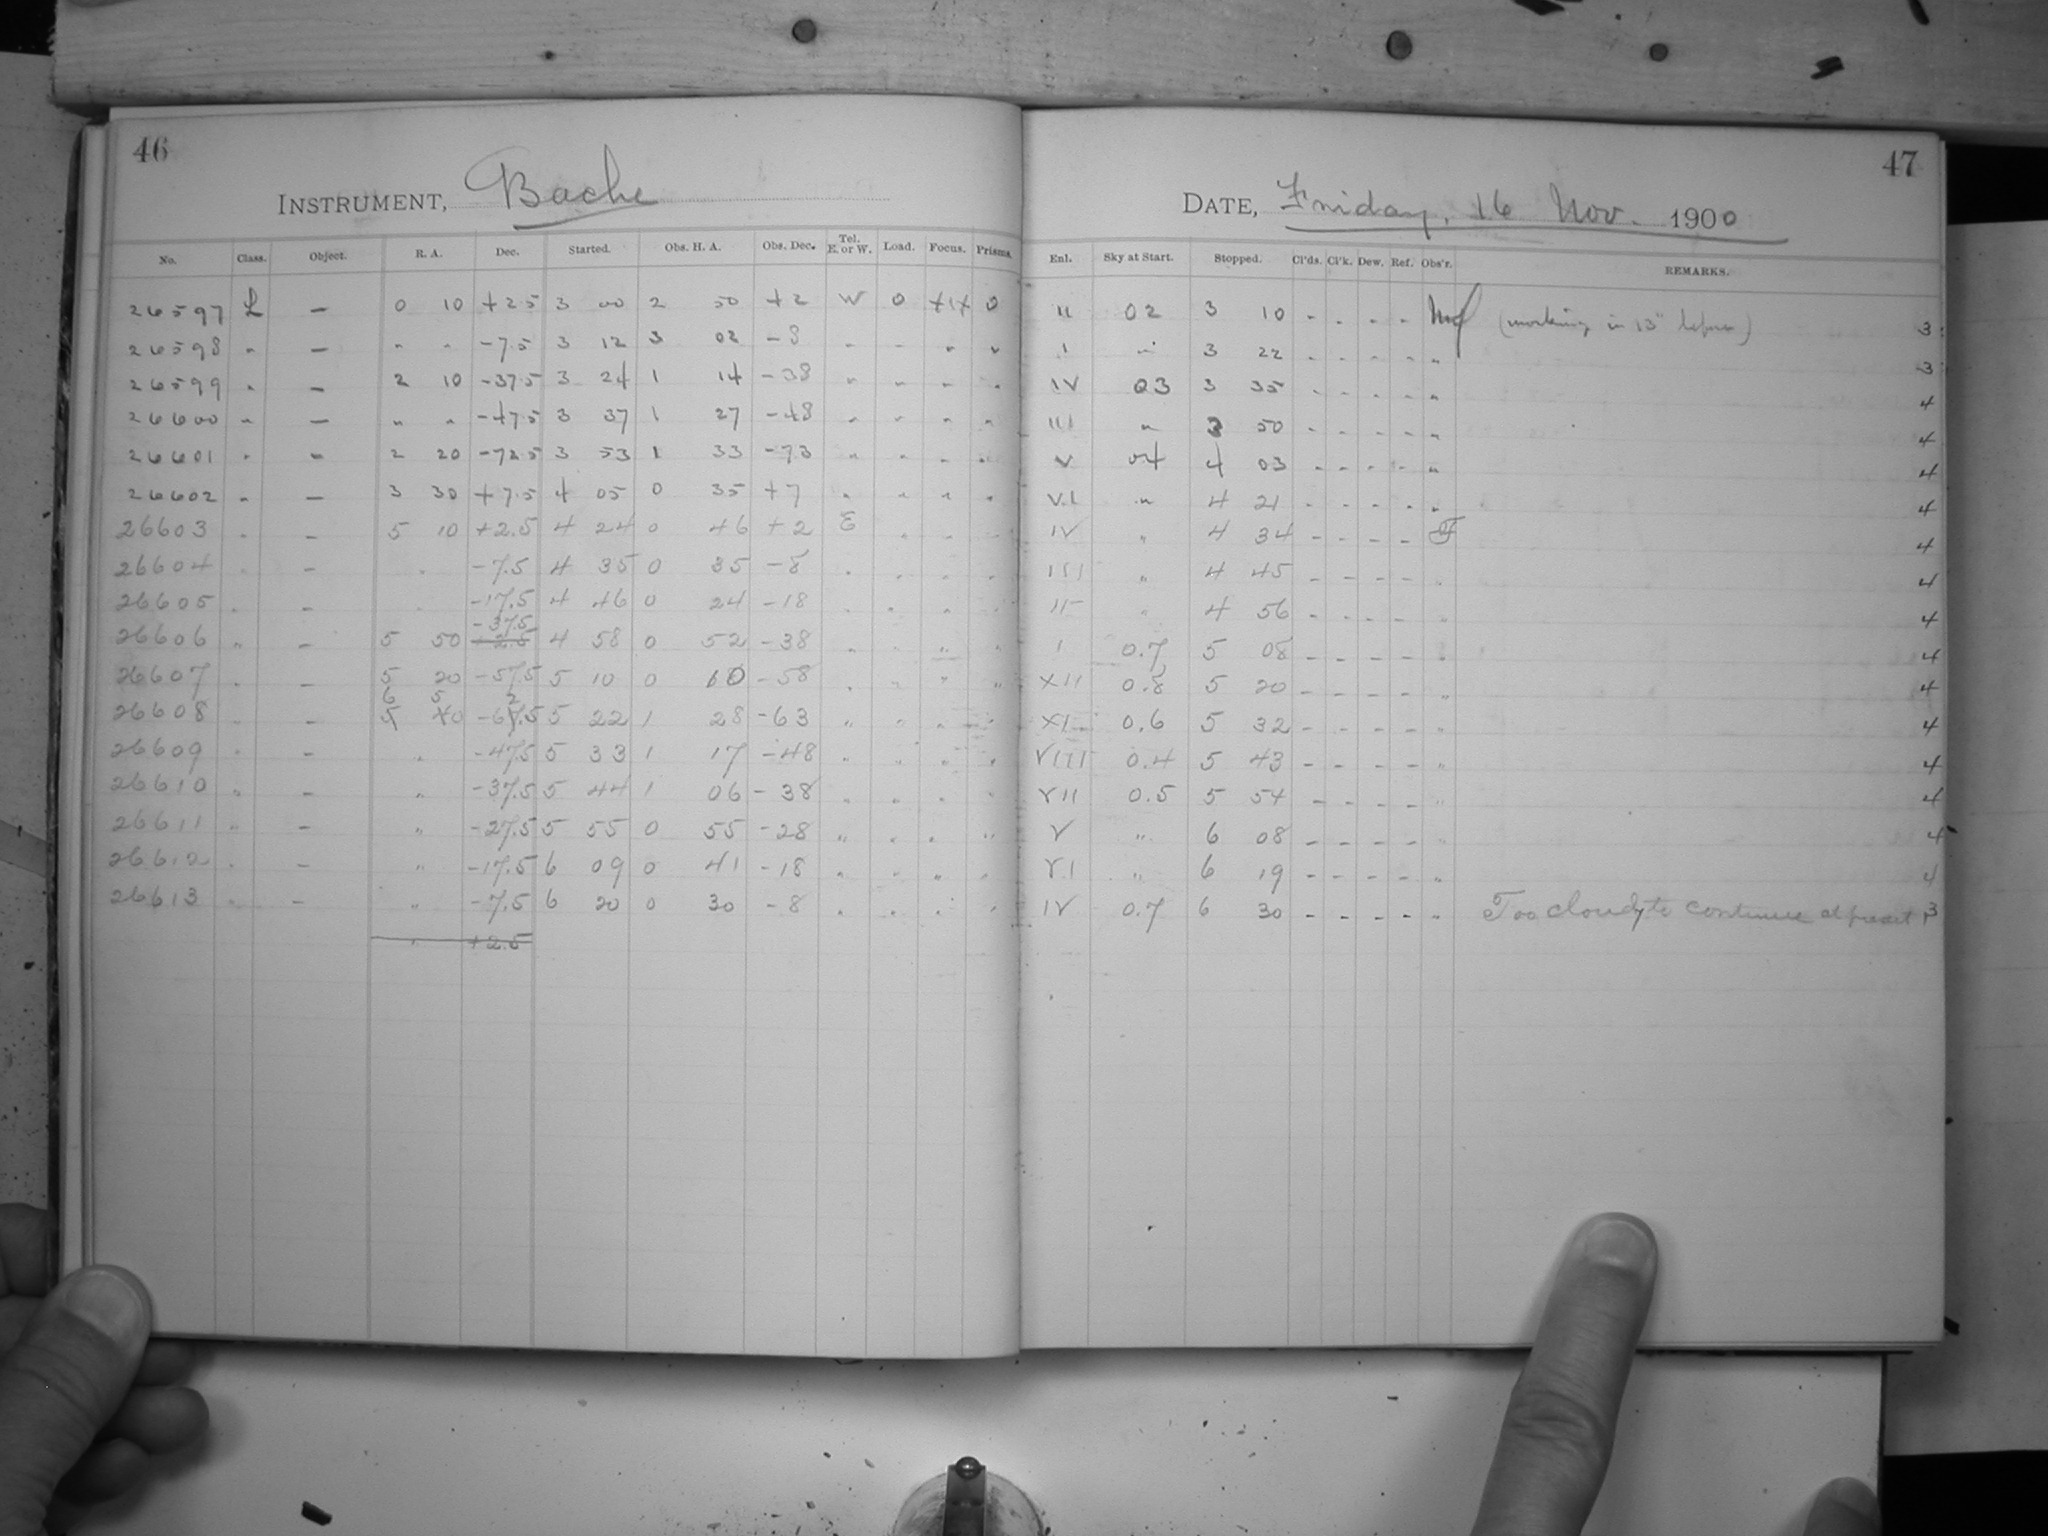 46
INSTRUMENT, Bache
No. Class. Object. R. A. Dec. Started. Obs. H. A. Obs. Dec. Tel. E. or W. Load. Focus. Prisms.
26597 L — 0 10 +2.5 3 00 2 50 +2 W 0 0
26598 " — " " -7.5 3 12 3 02 -8 " " " "
26599 " — 2 10 -37.5 3 24 1 14 -38 " " " "
26600 " — " " -47.5 3 37 1 27 -48 " " " "
26601 " — 2 20 -72.5 3 53 1 33 -73 " " " "
26602 " — 3 30 +7.5 4 05 0 35 +7 " " " "
26603 " — 5 10 +2.5 4 24 0 46 +2 E " " "
26604 " — " -7.5 4 35 0 35 -8 " " " "
26605 " — " -17.5 4 46 0 24 -18 " " " "
-37.5
26606 " — 5 50 +2.5 4 58 0 52 -38 " " " "
26607 " — 5 20 -57.5 5 10 0 10 -58 " " " "
6 5 2
26608 " — 5 40 -67.5 5 22 1 28 -63 " " " "
26609 " — " -47.5 5 33 1 17 -48 " " " "
26610 " — " -37.5 5 44 1 06 -38 " " " "
26611 " — " -27.5 5 55 0 55 -28 " " " "
26612 " — " -17.5 6 09 0 41 -18 " " " "
26613 " — " -7.5 6 20 0 30 -8 " " " "
" +2.5
47
DATE, Friday, 16 Nov. 1900
Enl. Sky at Start. Stopped. Cl'ds. Cl'k. Dew. Ref. Obs'r. REMARKS.
II 02 3 10 - - - - (working in 13" before) 3
I " 3 22 - - - - " 3
IV 03 3 35 - - - - " 4
III " 3 50 - - - - " 4
V 04 4 03 - - - - " 4
VI " 4 21 - - - - " 4
IV " 4 34 - - - - F 4
III " 4 45 - - - - " 4
II " 4 56 - - - - " 4
I 0.7 5 08 - - - - " 4
XII 0.8 5 20 - - - - " 4
XI 0.6 5 32 - - - - " 4
VIII 0.4 5 43 - - - - " 4
VII 0.5 5 54 - - - - " 4
V " 6 08 - - - - " 4
VI " 6 19 - - - - " 4
IV 0.7 6 30 - - - - " Too cloudy to continue at present 3